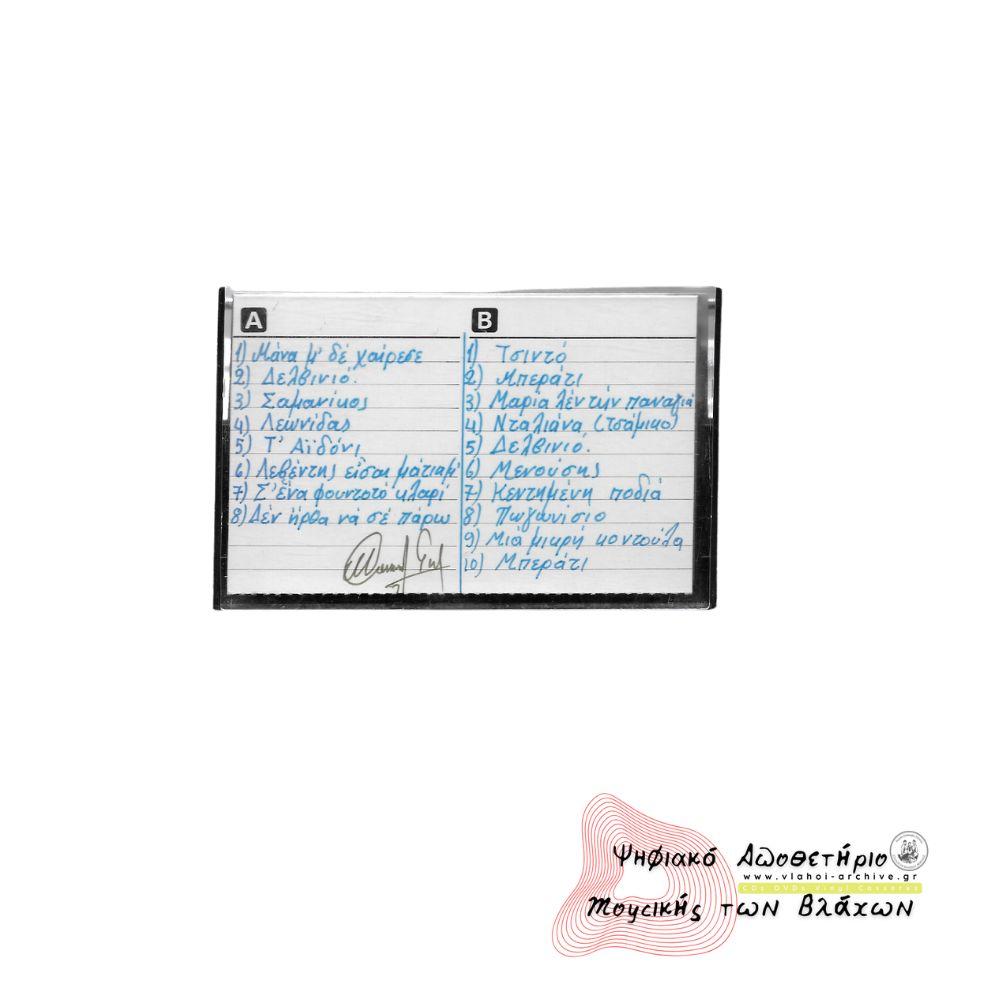 A
1) Μάνα μ' δέ χαίρεσε
2) Δελβινιό.
3) Σαμανίκος
4) Λεωνίδας
5) Τ' Αϊδόνι
6) Λεβέντης είσαι μάτιαμ'
7) Σ' ένα φουντοτό κλαρί
8) Δέν ήρθα νά σέ πάρω
B
1) Τσιντό
2) Μπεράτι
3) Μαρία λέν τήν παναγιά
4) Νταλιάνα (τσάμικο)
5) Δελβινιό.
6) Μενούσης
7) Κεντημένη ποδιά
8) Πωγωνίσιο
9) Μιά μικρή κοντούλα
10) Μπεράτι
Ψηφιακό Αποθετήριο
www.vlahoi-archive.gr
CDs DVDs Vinyl Cassetes
Μουσικής των Βλάχων